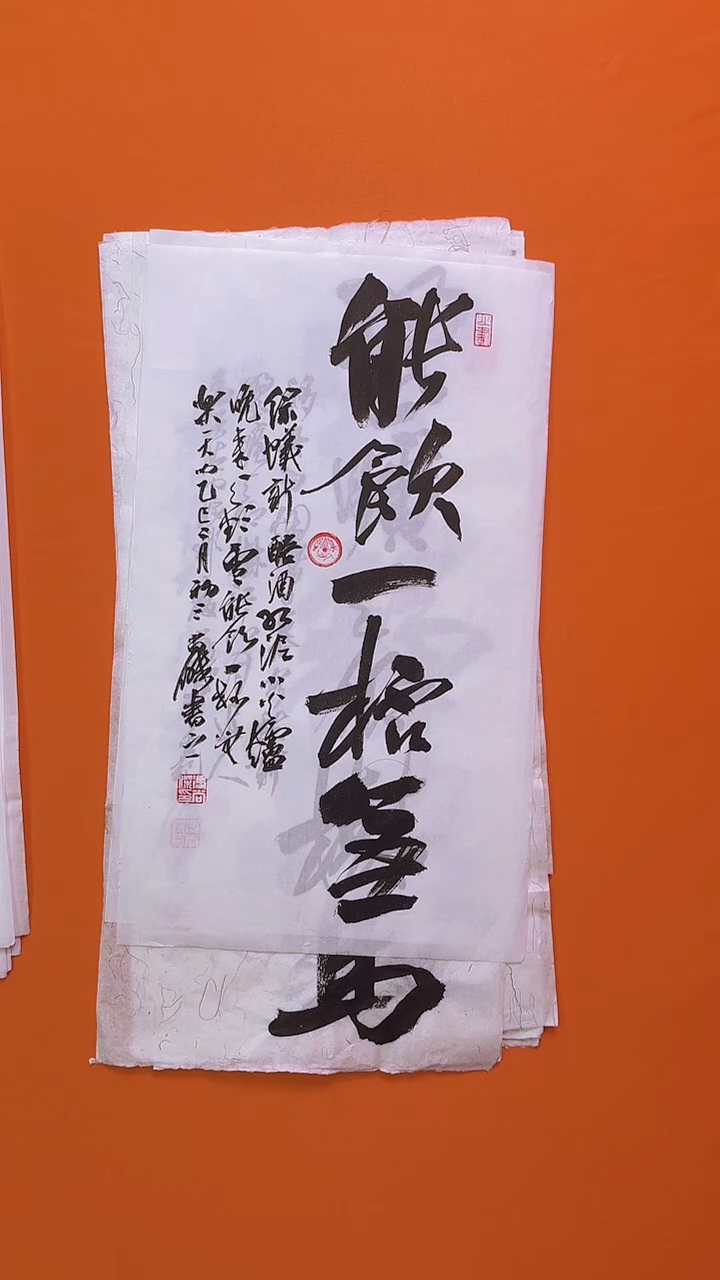 能飲一桮無
綠蟻新醅酒紅泥小火爐
晚來天欲雪能飲一杯無
樂天句乙巳二月初三 書之